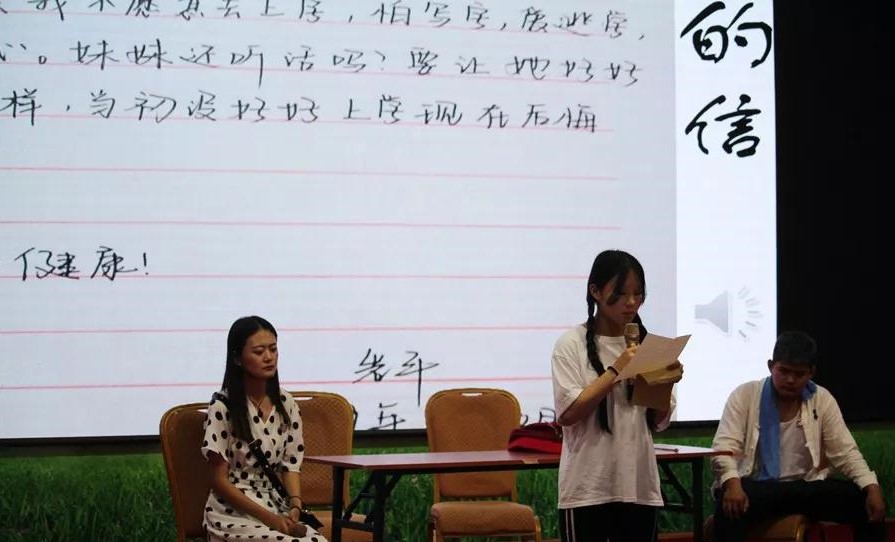 我不愿意去上学，怕写字，逃学，
。妹妹还听话吗？要让她好好
样，当初没好好上学现在后悔
健康！
年
的信